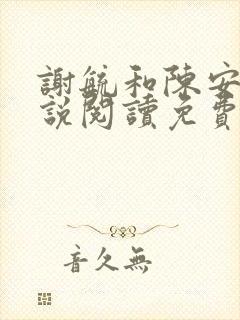 謝毓和陳安
說閱讀免費
音久無